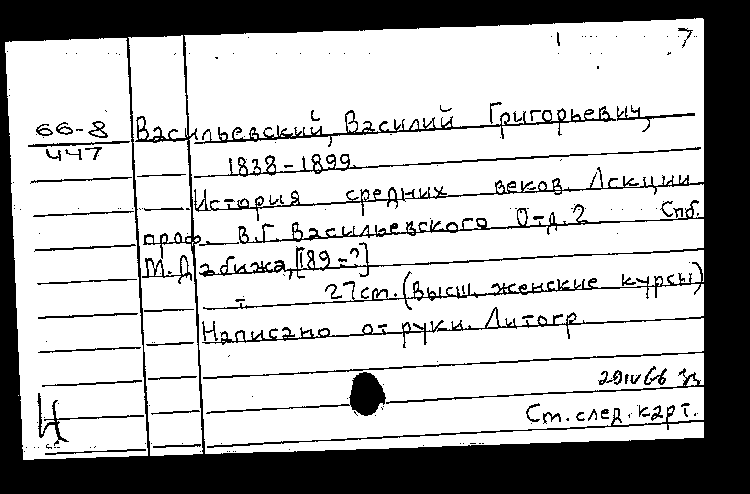 7
66-8 Васильевский, Василий Григорьевич,
447
1838-1899.
История средних веков. Лекции
проф. В.Г. Васильевского Отд. 2 Спб.
М. Дабижа, [189-?]
т. 27см. (Высш. женские курсы)
Написано от руки. Литогр.
29IV66
Ст. след. карт.